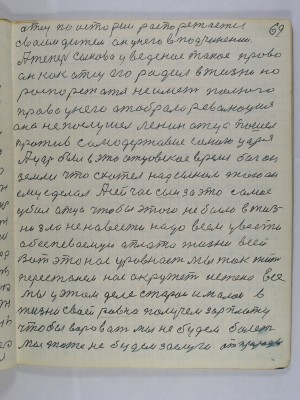 69
отцу по истории распоряжется
своим детем он у него в подчинении.
А теперь сынова уведеное такое право
он как отец его родил в жизно но
роспоряжатя неимеет полного
права у него отобрало революция
она непослушел Ленин отца пошел
против самодержавие самого царя
А царь был в это отцовское время бог он
земли что скотел над сыном то and он
ему сделал А сейчас сын за это самое
убил отца чтобы этого не было в жиз-
но зло ненавесть надо всем увести
обеспеваемую плато жизни всей
Вот это нас уровнает мы так жит
перестанем нас окружет истено все
мы у этом деле старой и малой в
жизно своей ровно получем зарплату
чтобы вароват мы не будем болет
мы тоже не будем заслуга от природы